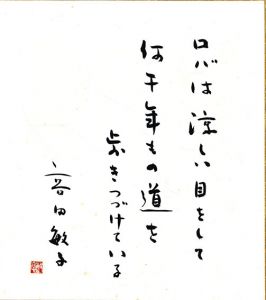 ロバは涼しい目をして
何千年もの道を
歩きつづけている